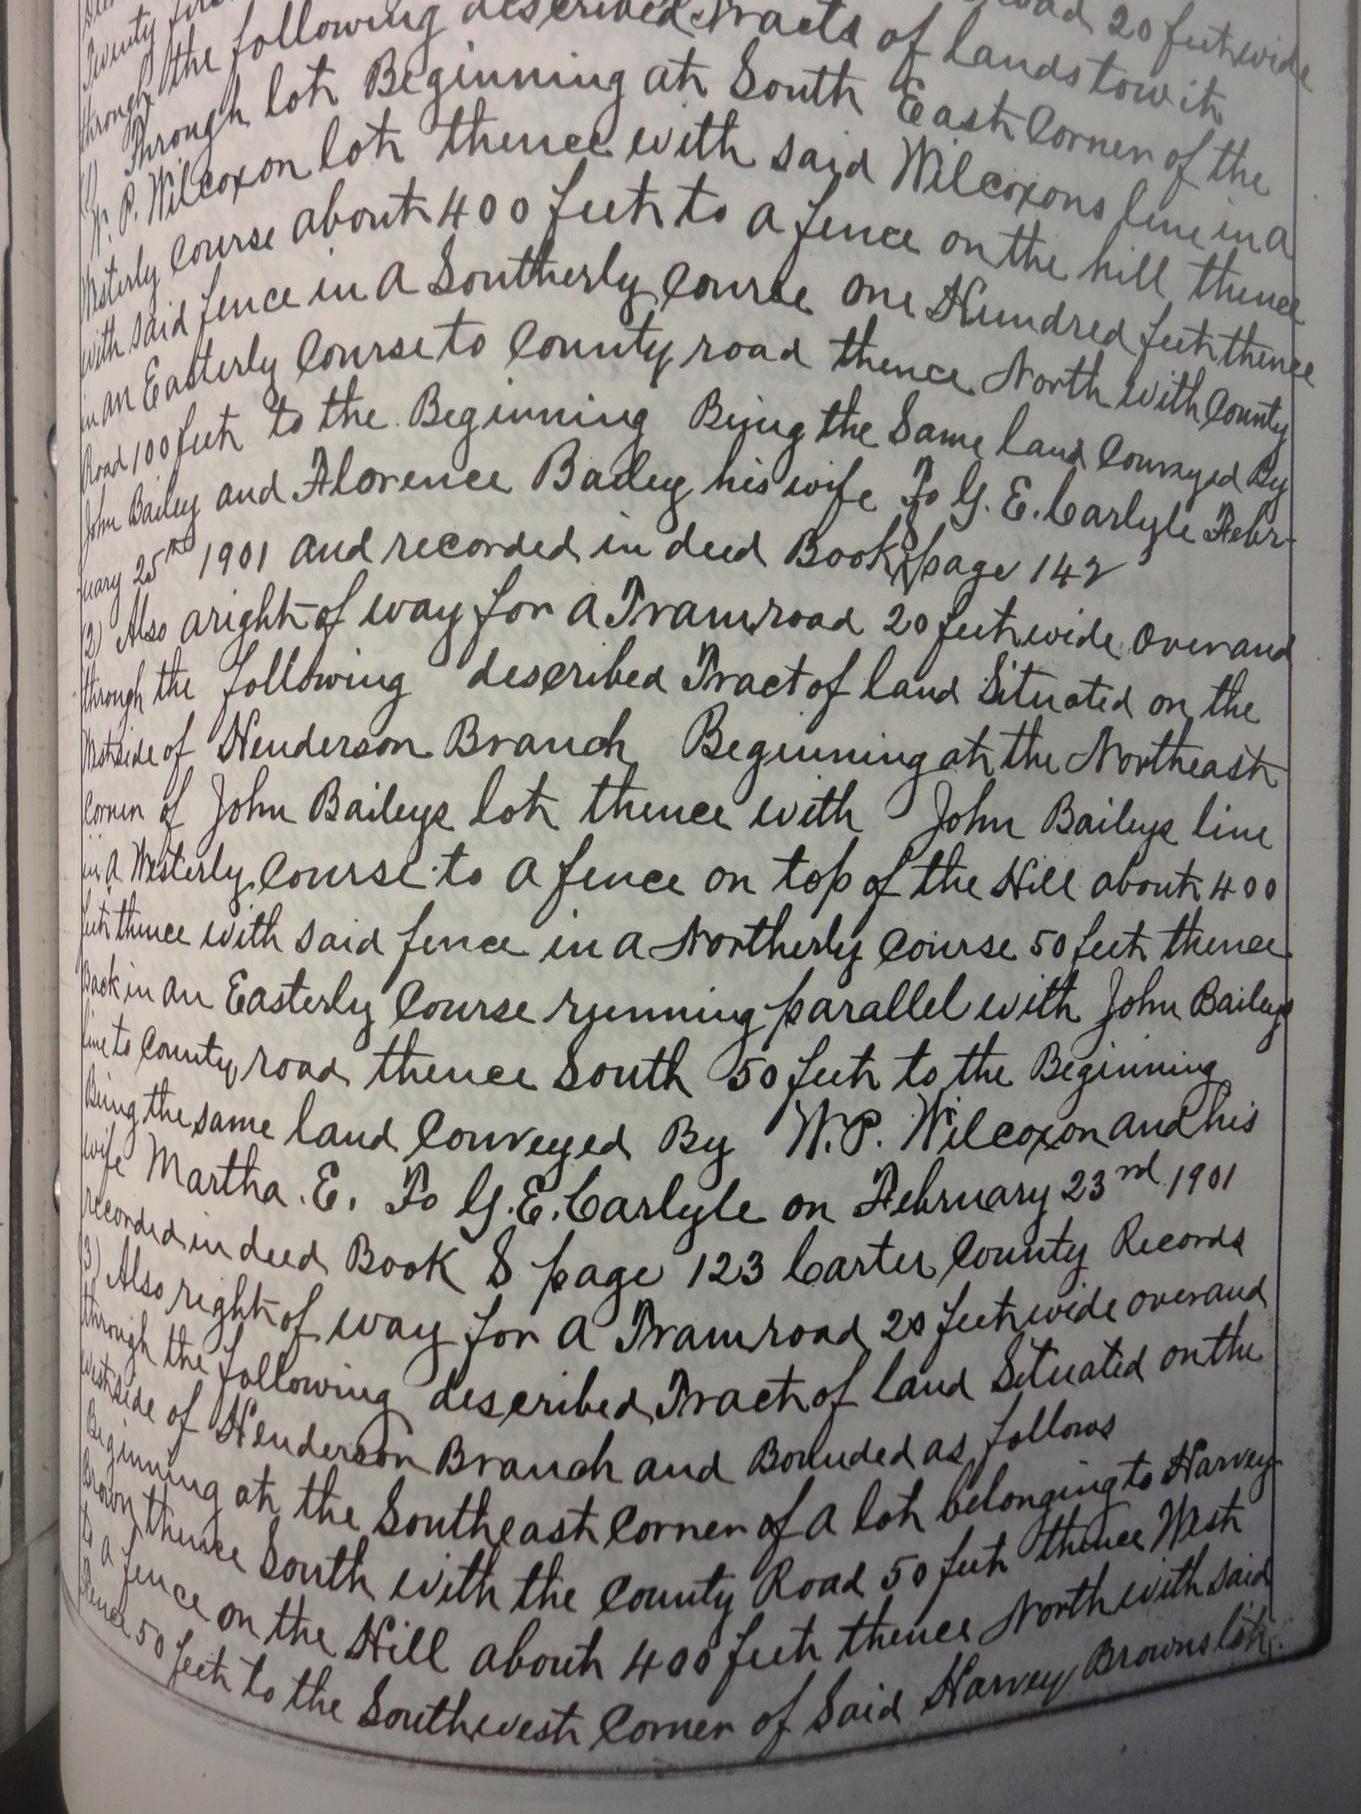 road 20 feet wide
through the following described Tracts of lands towit
(1) Through lot Beginning at South East Corner of the
W. P. Wilcoxon lot thence with said Wilcoxons line in a
Westerly Course about 400 feet to a fence on the hill thence
with said fence in a Southerly Course one Hundred feet thence
in an Easterly Course to County road thence North with County
Road 100 feet to the Beginning Being the Same land Conveyed By
John Bailey and Florence Bailey his wife To G. E. Carlyle Febr-
uary 25th 1901 and recorded in deed Book 8 page 142
(2) Also a right of way for a Tram road 20 feet wide over and
through the following described Tract of land Situated on the
West side of Henderson Branch Beginning at the Northeast
Corner of John Baileys lot thence with John Baileys line
in a Westerly Course to a fence on top of the Hill about 400
feet thence with said fence in a Northerly Course 50 feet thence
Back in an Easterly Course running parallel with John Baileys
line to County road thence South 50 feet to the Beginning
Being the same land Conveyed By W. P. Wilcoxon and his
wife Martha. E. To G. E. Carlyle on February 23rd 1901
recorded in deed Book 8 page 123 Carter County Records
(3) Also right of way for a Tram road 20 feet wide over and
through the following described Tract of land Situated on the
West side of Henderson Branch and Bounded as follows
Beginning at the Southeast Corner of a lot belonging to Harvey
Brown thence South with the County Road 50 feet thence West
to a fence on the Hill about 400 feet thence North with said
fence 50 feet to the Southwest Corner of Said Harvey Browns lot